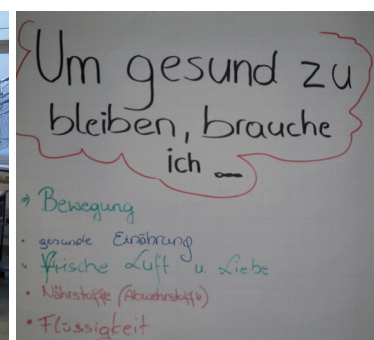 Um gesund zu
bleiben, brauche
ich ...
• Bewegung
• gesunde Ernährung
• frische Luft u. Liebe
• Nährstoffe (Abwehrstoffe)
• Flüssigkeit